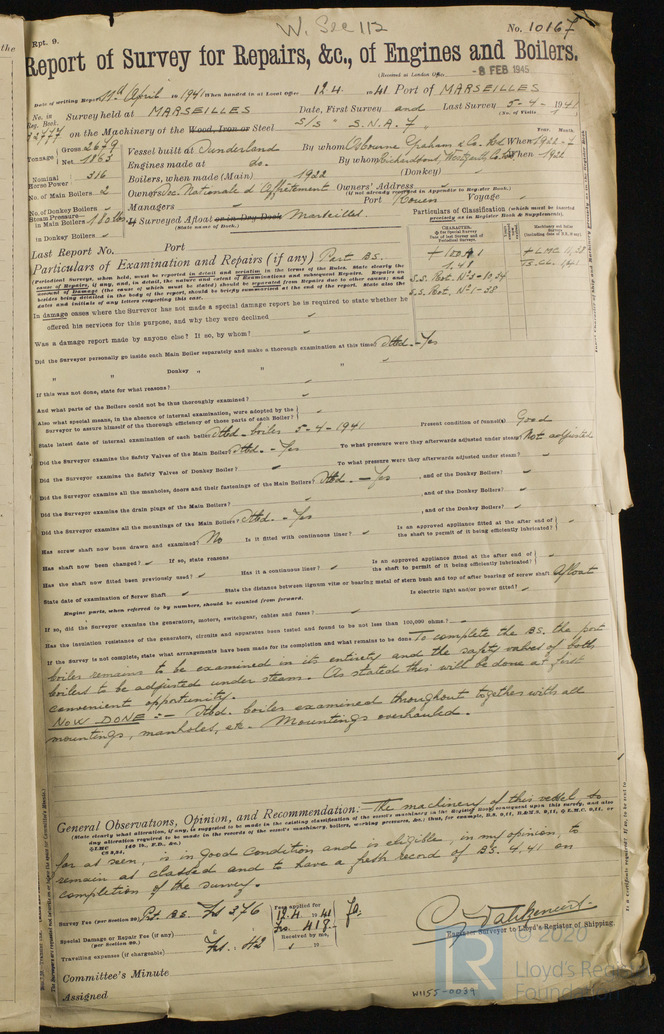 the
W. Sec 112
Rpt. 9.
No. 10167
Report of Survey for Repairs, &c., of Engines and Boilers.
(Received at London Office
-8 FEB 1945
Date of writing Report 11th April 1941 When handed in at Local Office 12.4 1941 Port of MARSEILLES
No. in Reg. Book. Survey held at MARSEILLES Date, First Survey and Last Survey 5-4-1941
(No. of Visits 1)
32777 on the Machinery of the Wood, Iron or Steel S/S "S.N.A. 7"
Tonnage Gross 2679 Vessel built at Sunderland By whom Osbourne Graham & Co. Ltd When 1922-7
Net 1863 Engines made at do. By whom When 1922
Nominal Horse Power 316 Boilers, when made (Main) 1922 (Donkey)
No. of Main Boilers 2 Owners Soc. Nationale d'Affrètement Owners' Address
(if not already recorded in Appendix to Register Book.)
No. of Donkey Boilers Managers Port Rouen Voyage
Steam Pressure in Main Boilers If Surveyed Afloat or in Dry Dock Marseilles
(State name of Dock.)
in Donkey Boilers
Particulars of Classification (which must be inserted precisely as in Register Book & Supplements).
Last Report No. Port
Particulars of Examination and Repairs (if any) Part BS.
CHARACTER.
+ 100 A 1
S.S. Rot. No. 3-10.34
S.S. Rot. No. 1-38
In damage cases where the Surveyor has not made a special damage report he is required to state whether he
offered his services for this purpose, and why they were declined
Was a damage report made by anyone else? If so, by whom?
Did the Surveyor personally go inside each Main Boiler separately and make a thorough examination at this time? Stbd. - Yes
" " Donkey " " "
If this was not done, state for what reasons?
And what parts of the Boilers could not be thus thoroughly examined?
Also what special means, in the absence of internal examination, were adopted by the
Surveyor to assure himself of the thorough efficiency of those parts of each Boiler?
State latest date of internal examination of each boiler Stbd. boiler 5-4-1941 Present condition of funnel(s) Good
Did the Surveyor examine the Safety Valves of the Main Boiler? Stbd. - Yes To what pressure were they afterwards adjusted under steam? Not adjusted
Did the Surveyor examine the Safety Valves of Donkey Boiler? To what pressure were they afterwards adjusted under steam?
Did the Surveyor examine all the manholes, doors and their fastenings of the Main Boilers? Stbd. - Yes , and of the Donkey Boilers?
Did the Surveyor examine the drain plugs of the Main Boilers? , and of the Donkey Boilers?
Did the Surveyor examine all the mountings of the Main Boilers? Stbd. - Yes , and of the Donkey Boilers?
Has screw shaft now been drawn and examined? No Is it fitted with continuous liner? Is an approved appliance fitted at the after end of the shaft to permit of it being efficiently lubricated?
Has shaft now been changed? If so, state reasons
Has the shaft now fitted been previously used? Has it a continuous liner? Is an approved appliance fitted at the after end of the shaft to permit of it being efficiently lubricated?
State date of examination of Screw Shaft State the distance between lignum vitæ or bearing metal of stern bush and top of after bearing of screw shaft Afloat
Engine parts, when referred to by numbers, should be counted from forward. Is electric light and/or power fitted?
If so, did the Surveyor examine the generators, motors, switchgear, cables and fuses?
Has the insulation resistance of the generators, circuits and apparatus been tested and found to be not less than 100,000 ohms?
If the Survey is not complete, state what arrangements have been made for its completion and what remains to be done To complete the BS. the port
boiler remains to be examined in its entirety and the safety valves of both
boilers to be adjusted under steam. As stated this will be done at first
convenient opportunity.
NOW DONE :- Stbd. boiler examined throughout together with all
mountings, manholes, etc. Mountings overhauled.
General Observations, Opinion, and Recommendation:- The machinery of this vessel, so
far as seen, is in good condition and is eligible, in my opinion, to
remain as classed and to have a fresh record of BS. 4,41 on
completion of the survey.
Survey Fee (per Section 29) Pt. BS. Frs 376 Fee applied for 12.4 1941
Special Damage or Repair Fee (if any) (per Section 29.) Frs. 418.-
Travelling expenses (if chargeable) Frs. 42 Received by me,
Engineer Surveyor to Lloyd's Register of Shipping.
Committee's Minute
Assigned
W1155-0039
LR
© 2020
Lloyd's Register
Foundation